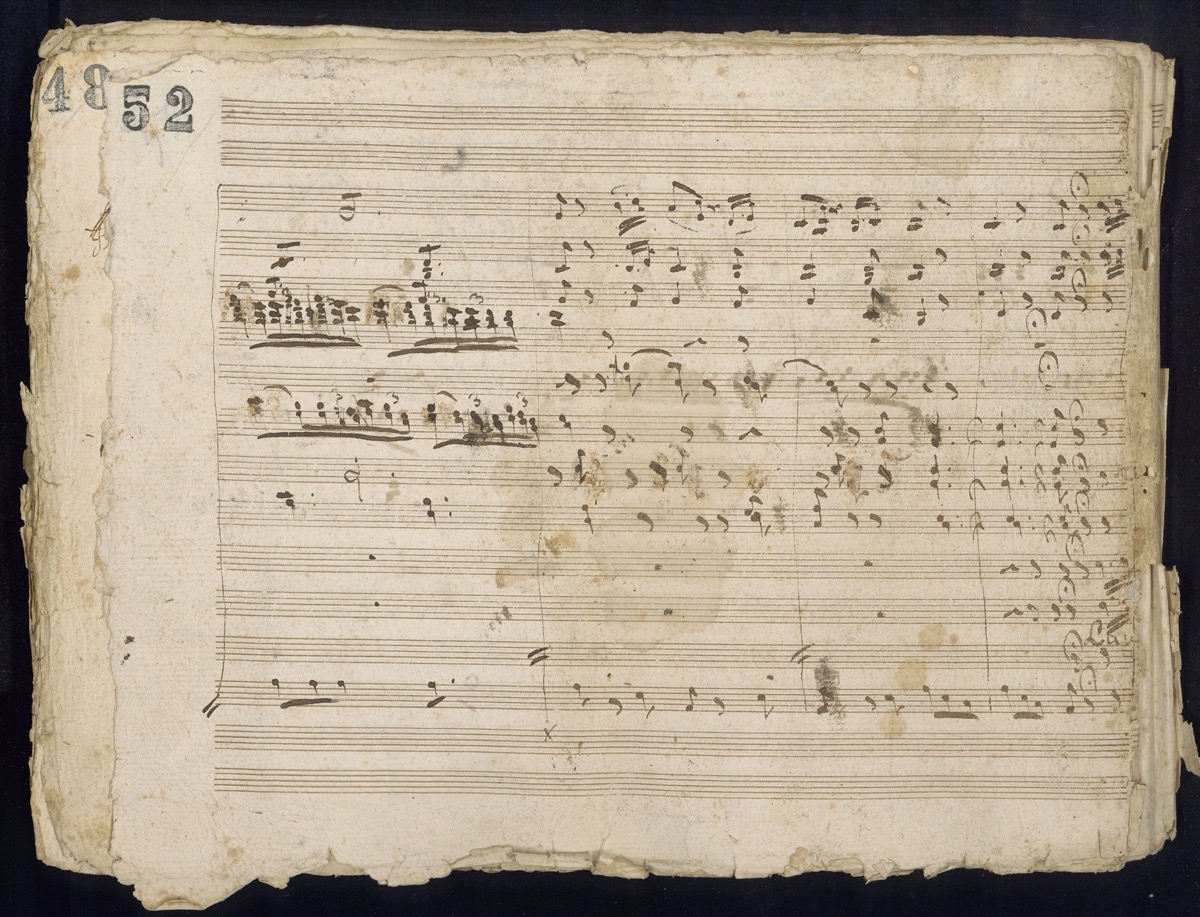 48
52